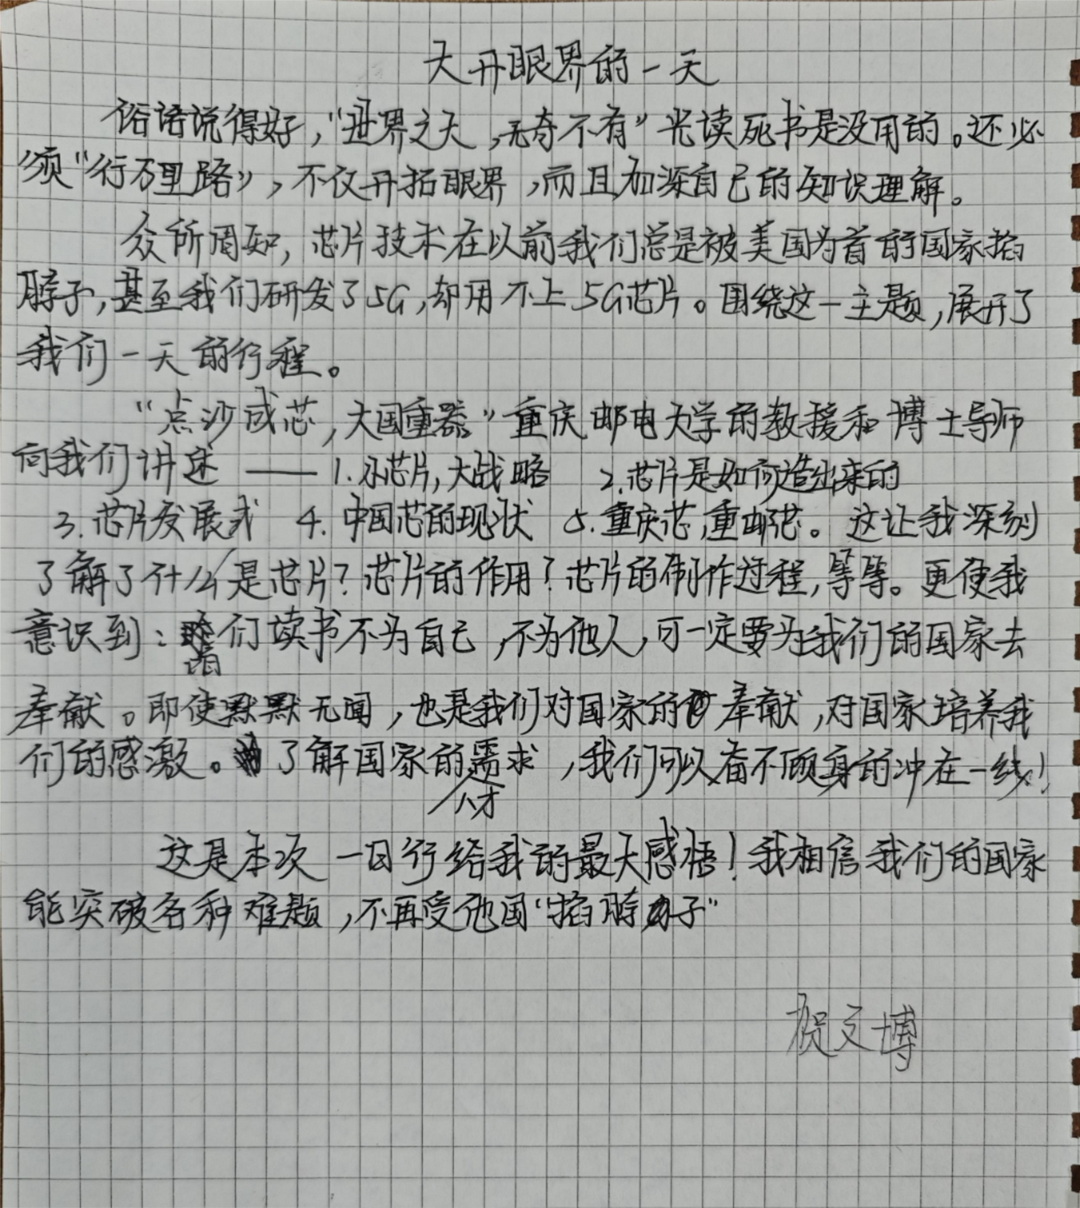 大开眼界的一天
俗话说得好，“世界之大，无奇不有”光读死书是没用的。还必
须“行万里路”，不仅开拓眼界，而且加深自己的知识理解。
众所周知，芯片技术在以前我们总是被美国为首的国家掐
脖子，甚至我们研发了5G，却用不上5G芯片。围绕这一主题，展开了
我们一天的行程。
“点沙成芯，大国重器”重庆邮电大学的教授和博士导师
向我们讲述——1.小芯片，大战略 2.芯片是如何造出来的
3.芯片发展式 4.中国芯的现状 5.重庆芯，重邮芯。这让我深刻
了解了什么是芯片？芯片的作用？芯片的制作过程，等等。更使我
意识到：咱们读书不为自己，不为他人，可一定要为我们的国家去
奉献。即使默默无闻，也是我们对国家的奉献，对国家培养我
们的感激。了解国家的人才需求，我们可以奋不顾身的冲在一线！
这是本次一日行给我的最大感悟！我相信我们的国家
能突破各种难题，不再受他国“掐脖子”
贺文博